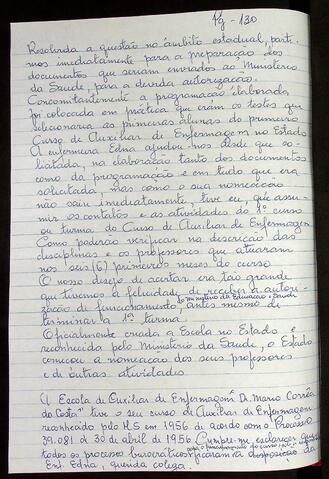 Pg - 130
Resolvida a questão no âmbito estadual, parti-
mos imediatamente para a preparação dos
documentos que seriam enviados ao Ministério
da Saude, para a devida autorização.
Concomitantemente a programação elaborada
foi colocada em prática que eram os testes que
selecionaria as primeiras alunas do primeiro
Curso de Auxiliar de Enfermagem no Estado
A enfermeira Edna ajudou-nos desde que so-
licitada, na elaboração tanto dos documentos
como da programação e em tudo que era
solicitada, mas como a sua nomeação
não saiu imediatamente, tive eu, que assu-
mir os contatos e as atividades do 1º curso
ou turma do Curso de Auxiliar de Enfermagem
Como poderão verificar na descrição das
disciplinas e os professores que atuaram
nos seus (6) primeiros meses do curso.
O nosso desejo de acertar era tão grande
que tivemos a felicidade de receber a autori-
zação de funcionamento, do Ministério da Educação e Saude antes mesmo de
terminar a 1ª turma.
Oficialmente criada a Escola no Estado e
reconhecida pelo Ministério da Saude, o Estado
começou a nomeação dos seus professores
e de outras atividades
A Escola de Auxiliar de Enfermagem "Dr. Mario Corrêa
da Costa" teve o seu curso de Auxiliar de Enfermagem
reconhecido pelo M.S em 1956 de acordo com o Processo
39.081 de 30 de abril de 1956. Cumpre-me esclarecer que
todos os processos burocráticos para o funcionamento do curso ficaram a disposição da
Enf. Edna, querida colega.